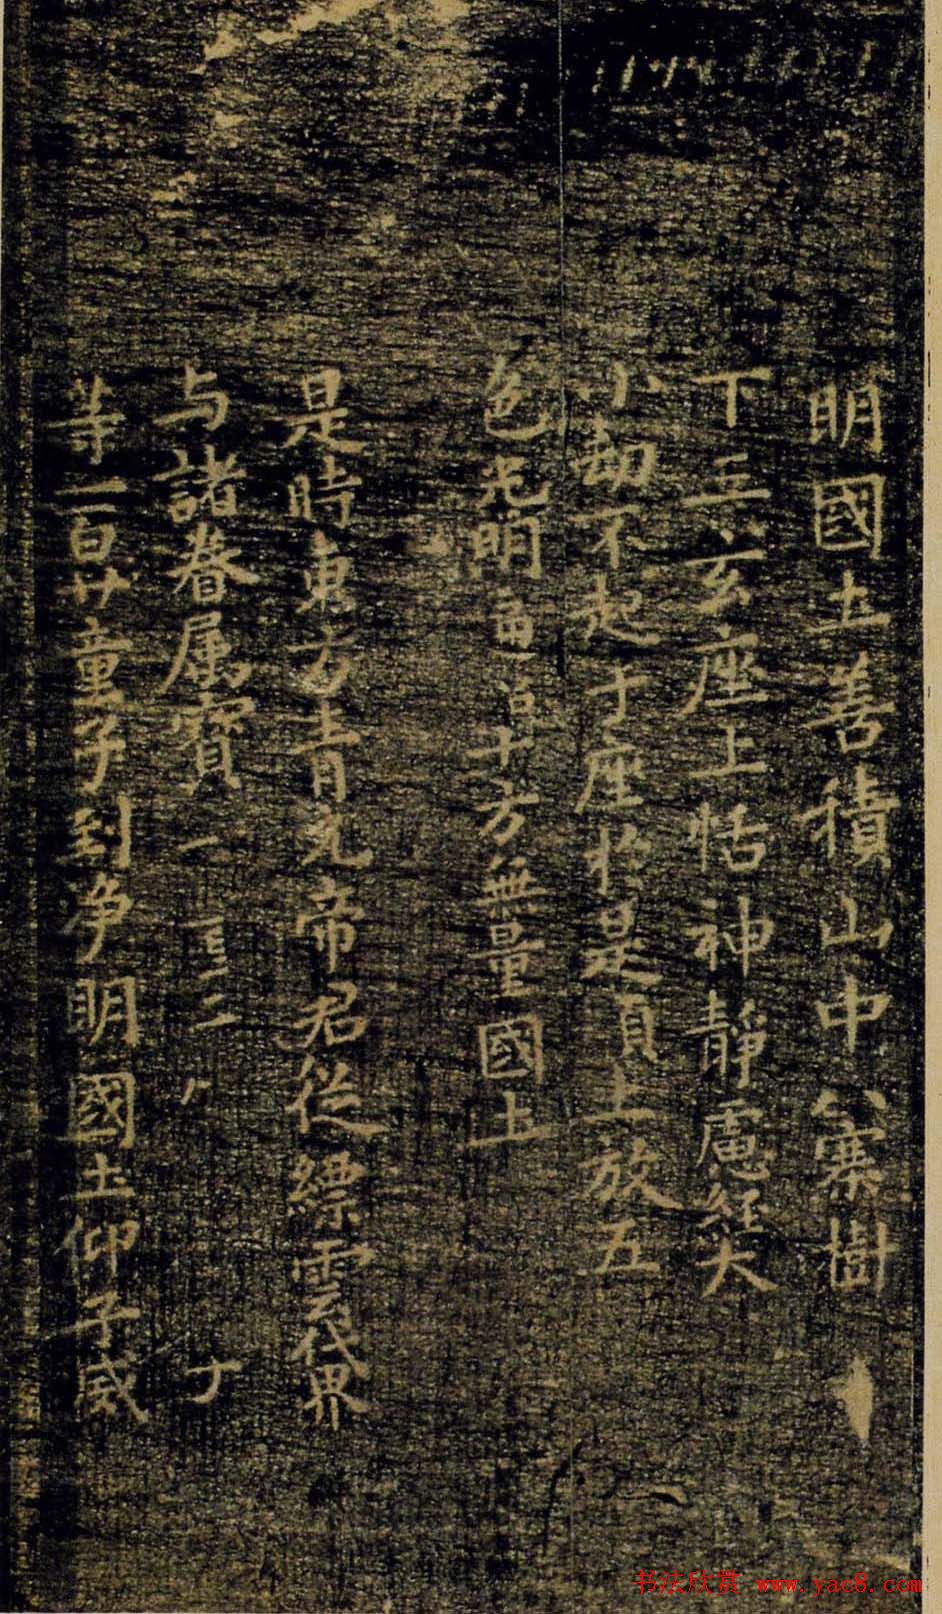 明國土善積山中 騫樹
下 玄座上恬神靜慮經大
小劫不起于座於是頂上放五
色光明 十方無量國土
是時東方青元帝君從縹雲世界
与諸眷属寶
等一百廿童子到淨明國土仰手威
书法欣赏 www.yac8.com